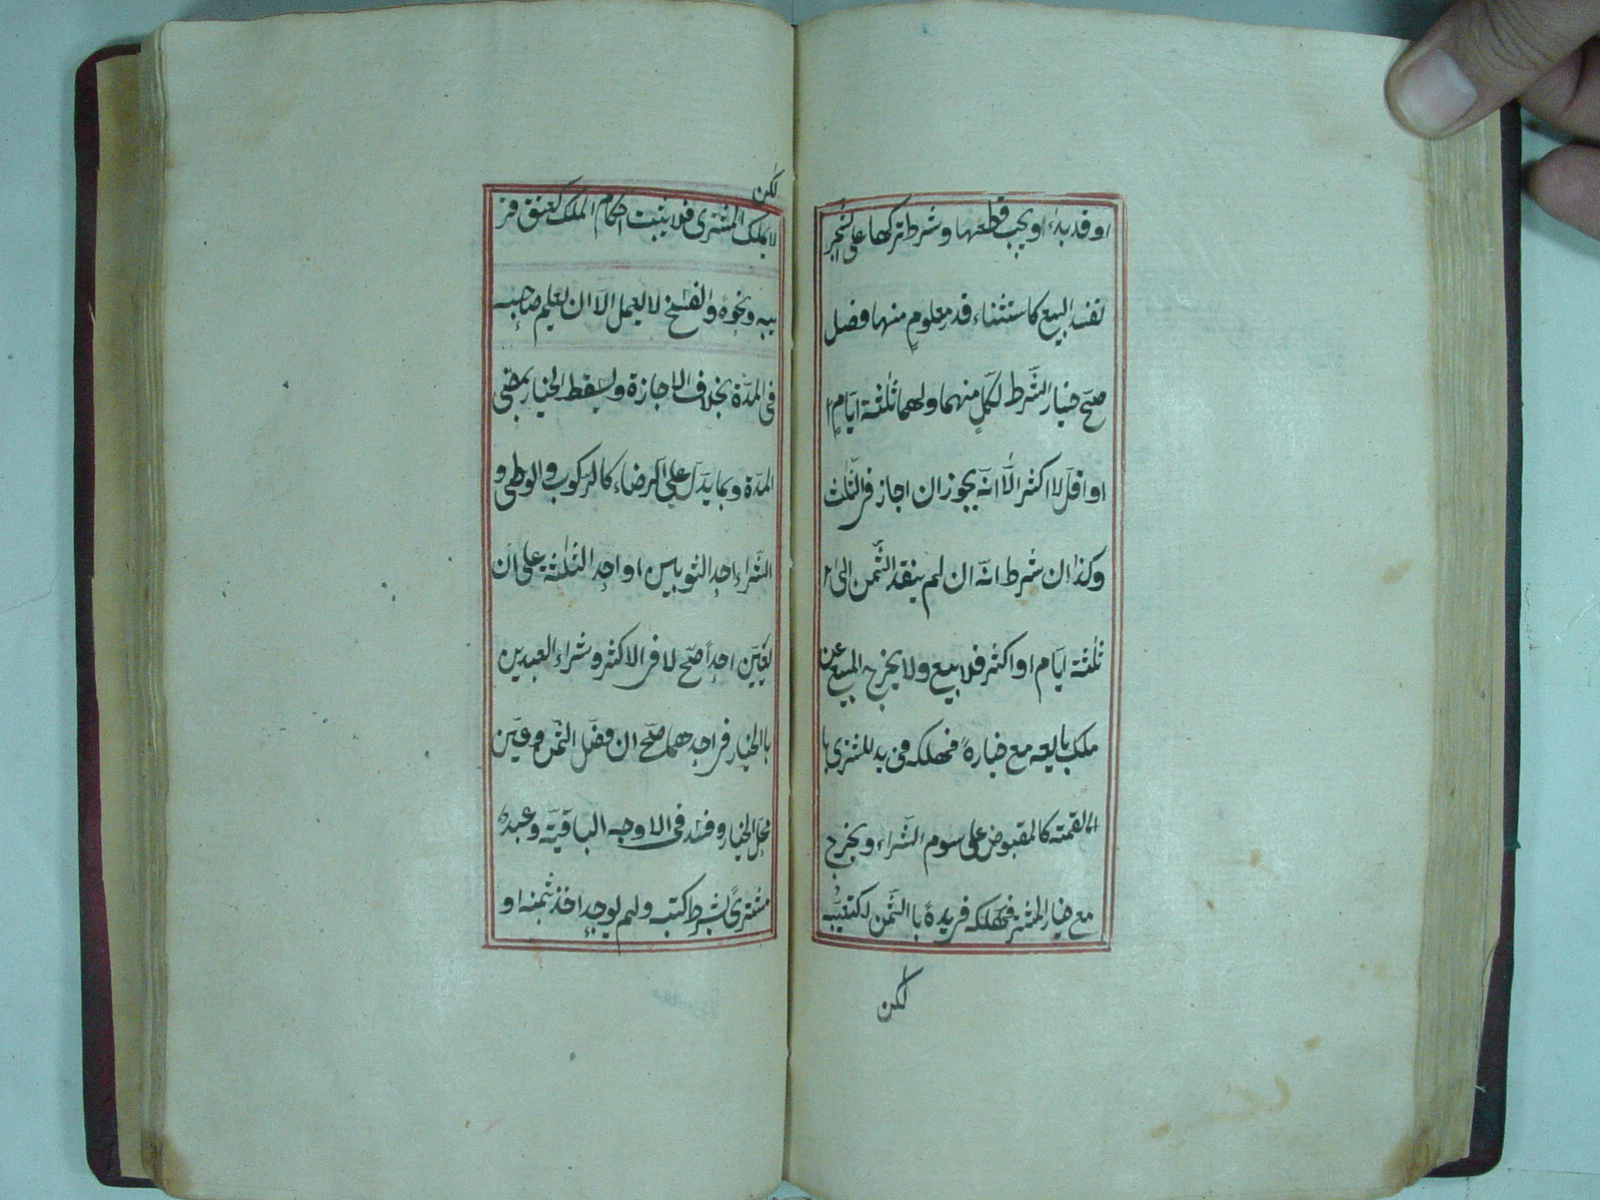 او قد بدء او يجب قطعها وشرط تركها على الشجر
تفسد البيع كاستثناء قدر معلوم منها فصل
صحّ خيار الشّرط لكلّ منهما ولهما ثلثة ايّام
او اقل لا اكثر الّا انّه يجوز ان اجاز فى الثّلث
وكذا ان شرط انّه ان لم ينقد الثّمن الى
ثلثة ايّام او اكثر فلا بيع ولا يخرج المبيع عن
ملك بايعه مع خياره فهلكه فى يد المشترى با
القيمة كالمقبوض على سوم الشّراء ويخرج
مع خيار المشترى فهلكه فى يده باالثّمن كتعيّبه
لكن
لكن
لا يملك المشترى فلا يثبت احكام الملك كعتق قر
يبه ونحوه والفسخ لا يعمل الّا ان يعلم صاحبه
فى المدّة بخلاف الاجازة ويسقط الخيار بمضى
المدّة وبما يدلّ على الرضاء كالركوب والوطى و
الشّراء احد الثوبين او احد الثلثة على ان
يعيّن احدا صحّ لا فى الاكثر وشراء العبدين
باالخيار فى احدهما صحّ ان فصّل الثّمن وعيّن
محل الخيار وفسد فى الاوجه الباقيّة وعبد
مشترى بشرط كتبه ولم يوجد اخذ بثمنه او